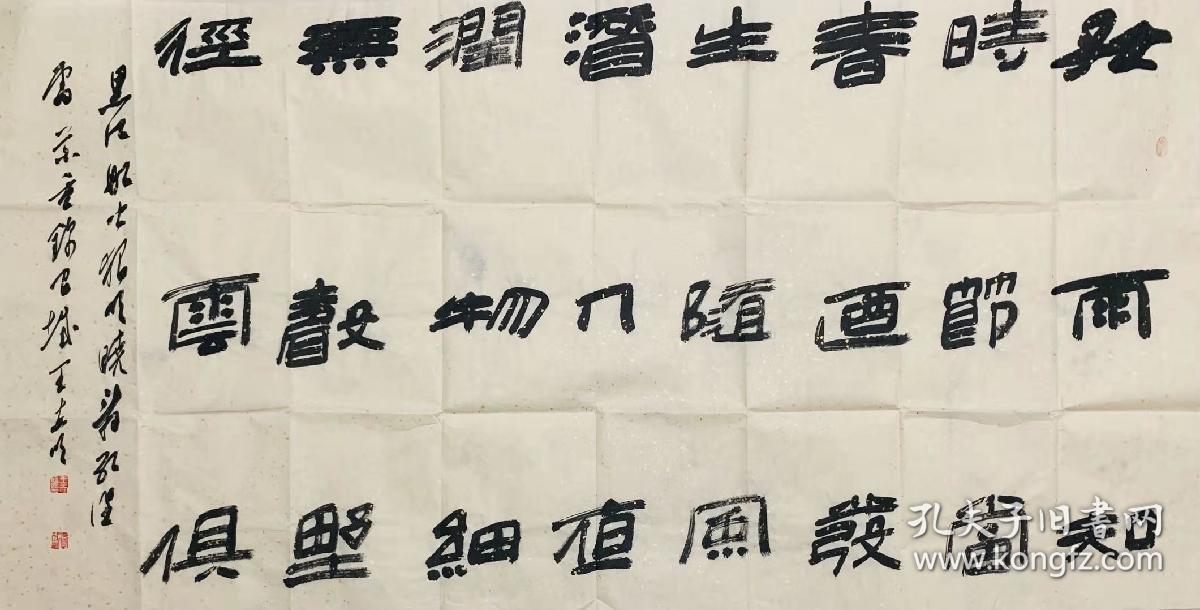 好雨知
時節當
春迺發
生隨風
潛入夜
潤物細
無聲野
徑雲俱
黑江船火獨明曉看紅濕
處花重錦官城王
孔夫子旧书网
www.kongfz.com